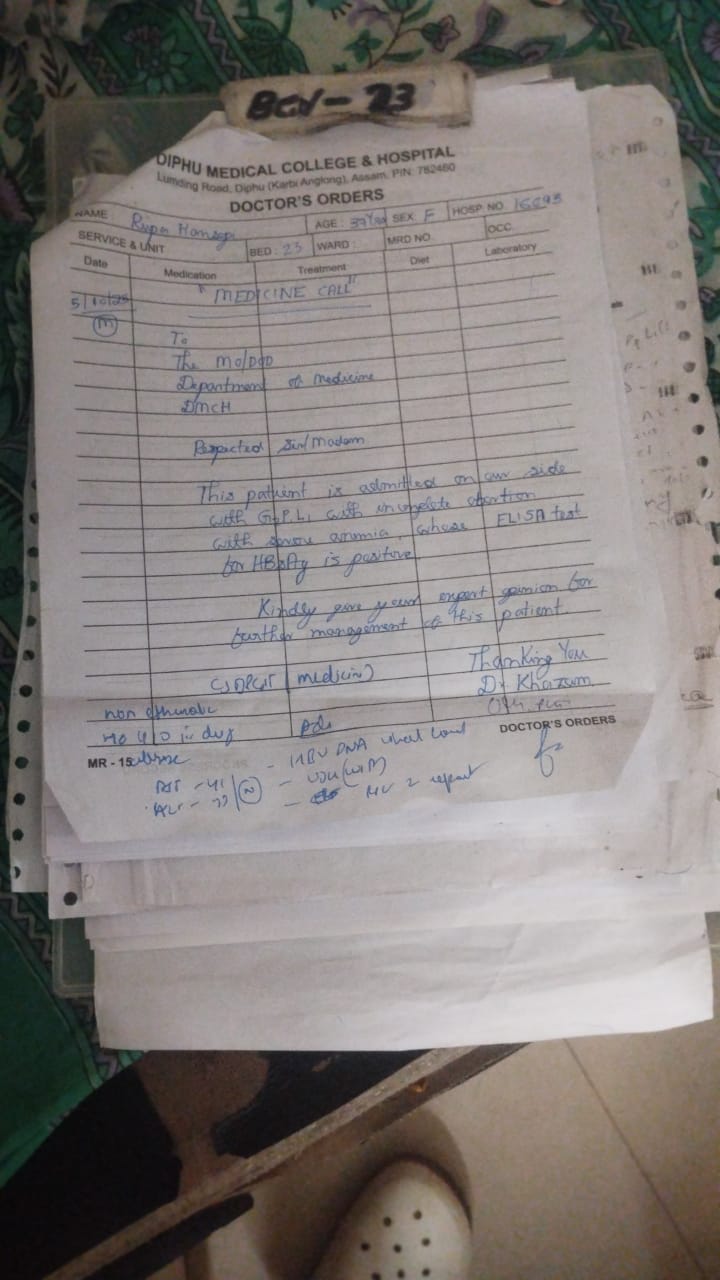 BED - 23
DIPHU MEDICAL COLLEGE & HOSPITAL
Lumding Road, Diphu (Karbi Anglong), Assam, PIN: 782460
DOCTOR'S ORDERS
NAME Rupa AGE : 37 SEX F HOSP. NO.
SERVICE & UNIT BED : 23 WARD : MRD NO. OCC.
Date Medication Treatment Diet Laboratory
5/10/25 "MEDICINE CALL"
M
To
The MO/DOD
Department of Medicine
DMCH
Respected Sir/Madam
This patient is admitted on our side
with G2P1L1 with incomplete abortion
with severe anemia, whose ELISA test
for HBsAg is positive.
Kindly give your expert opinion for
further management of this patient.
Thanking You
(medicine) Dr Khaizum
non
Adv
MR - 15 DOCTOR'S ORDERS
- HBV DNA viral load
AST - 41
ALT - N
- repeat